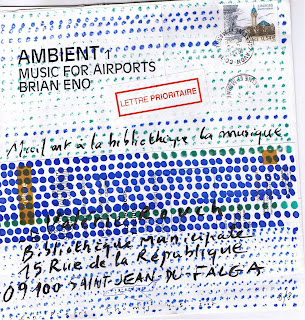 AMBIENT 1
MUSIC FOR AIRPORTS
BRIAN ENO
LETTRE PRIORITAIRE
Mail art à la bibliothèque la musique
Bibliothèque Municipale
15 Rue de la République
09100 SAINT JEAN DU FALGA